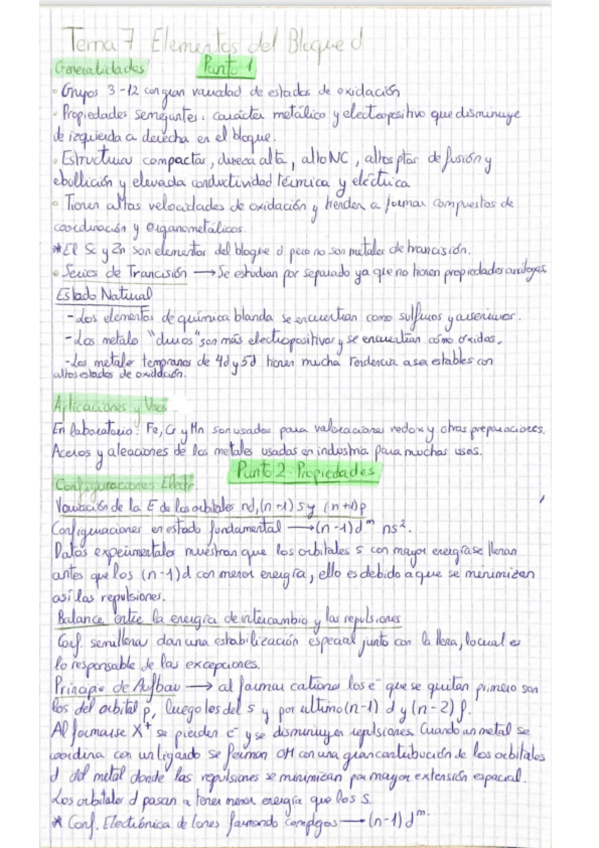 Tema 7 Elementos del Bloque d
Generalidades Punto 1
◦ Grupos 3-12 con gran variedad de estados de oxidación
◦ Propiedades semejantes: carácter metálico y electropositivo que disminuye
de izquierda a derecha en el bloque.
◦ Estructuras compactas, dureza alta, alto NC, altos ptos de fusión y
ebullición y elevada conductividad térmica y eléctrica
◦ Tienen altas velocidades de oxidación y tienden a formar compuestos de
coordinación y organometálicos.
*El Sc y Zn son elementos del bloque d pero no son metales de trancisión.
◦ Series de Trancisión → Se estudian por separado ya que no tienen propiedades análogas
Estado Natural
- Los elementos de química blanda se encuentran como sulfuros y arseniuros.
- Los metales "duros" son más electropositivos y se encuentran como óxidos.
- Los metales tempranos de 4d y 5d tienen mucha tendencia a ser estables con
altos estados de oxidación.
Aplicaciones y Usos
En laboratorio: Fe, Cr y Mn son usados para valoraciones redox y otras preparaciones.
Aceros y aleaciones de los metales usadas en industria para muchos usos.
Punto 2 - Propiedades
Configuraciones Electr.
Variación de la E de los orbitales nd, (n-1) s y (n+1)p
Configuraciones en estado fundamental → (n-1)d^m ns².
Datos experimentales muestran que los orbitales s con mayor energía se llenan
antes que los (n-1)d con menor energía, ello es debido a que se minimizan
así las repulsiones.
Balance entre la energía de intercambio y las repulsiones
Conf. semillena dan una estabilización especial junto con la llena, lo cual es
lo responsable de las excepciones.
Principio de Aufbau → al formar cationes los e⁻ que se quitan primero son
los del orbital p, luego los del s y por ultimo (n-1) d y (n-2) f.
Al formarse X⁺ se pierden e⁻ y se disminuyen repulsiones. Cuando un metal se
coordina con un ligando se forman OM con una gran contribución de los orbitales
d del metal donde las repulsiones se minimizan por mayor extensión espacial.
Los orbitales d pasan a tener menor energía que los s.
* Conf. Electrónica de Iones formando complejos → (n-1) d^m.